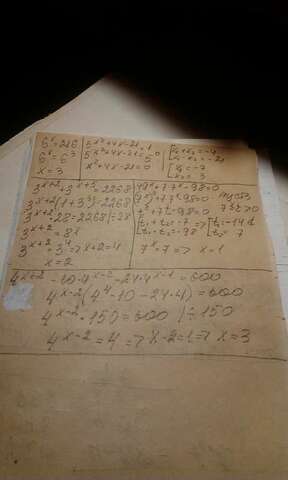 6ˣ=216
6ˣ=6³
x=3
5ˣ²⁺⁴ˣ⁻²¹=1
5ˣ²⁺⁴ˣ⁻²¹=5⁰
x²+4x-21=0
x₁+x₂=-4
x₁·x₂=-21
x₁=-7
x₂=3
3ˣ⁺²+3ˣ⁺⁵=2268
3ˣ⁺²(1+3³)=2268
3ˣ⁺²·28=2268|÷28
3ˣ⁺²=81
3ˣ⁺²=3⁴=>x+2=4
x=2
49ˣ+7·7ˣ-98=0
t²+7t-98=0
t₁+t₂=-7 => t₁=-14
t₁·t₂=-98 t₂=7
7ˣ=7=> x=1
4ˣ⁺²-10·4ˣ⁻²-24·4ˣ⁻¹=600
4ˣ⁻²(4⁴-10-24·4)=600
4ˣ⁻²·150=600 |÷150
4ˣ⁻²=4=>x-2=1=> x=3